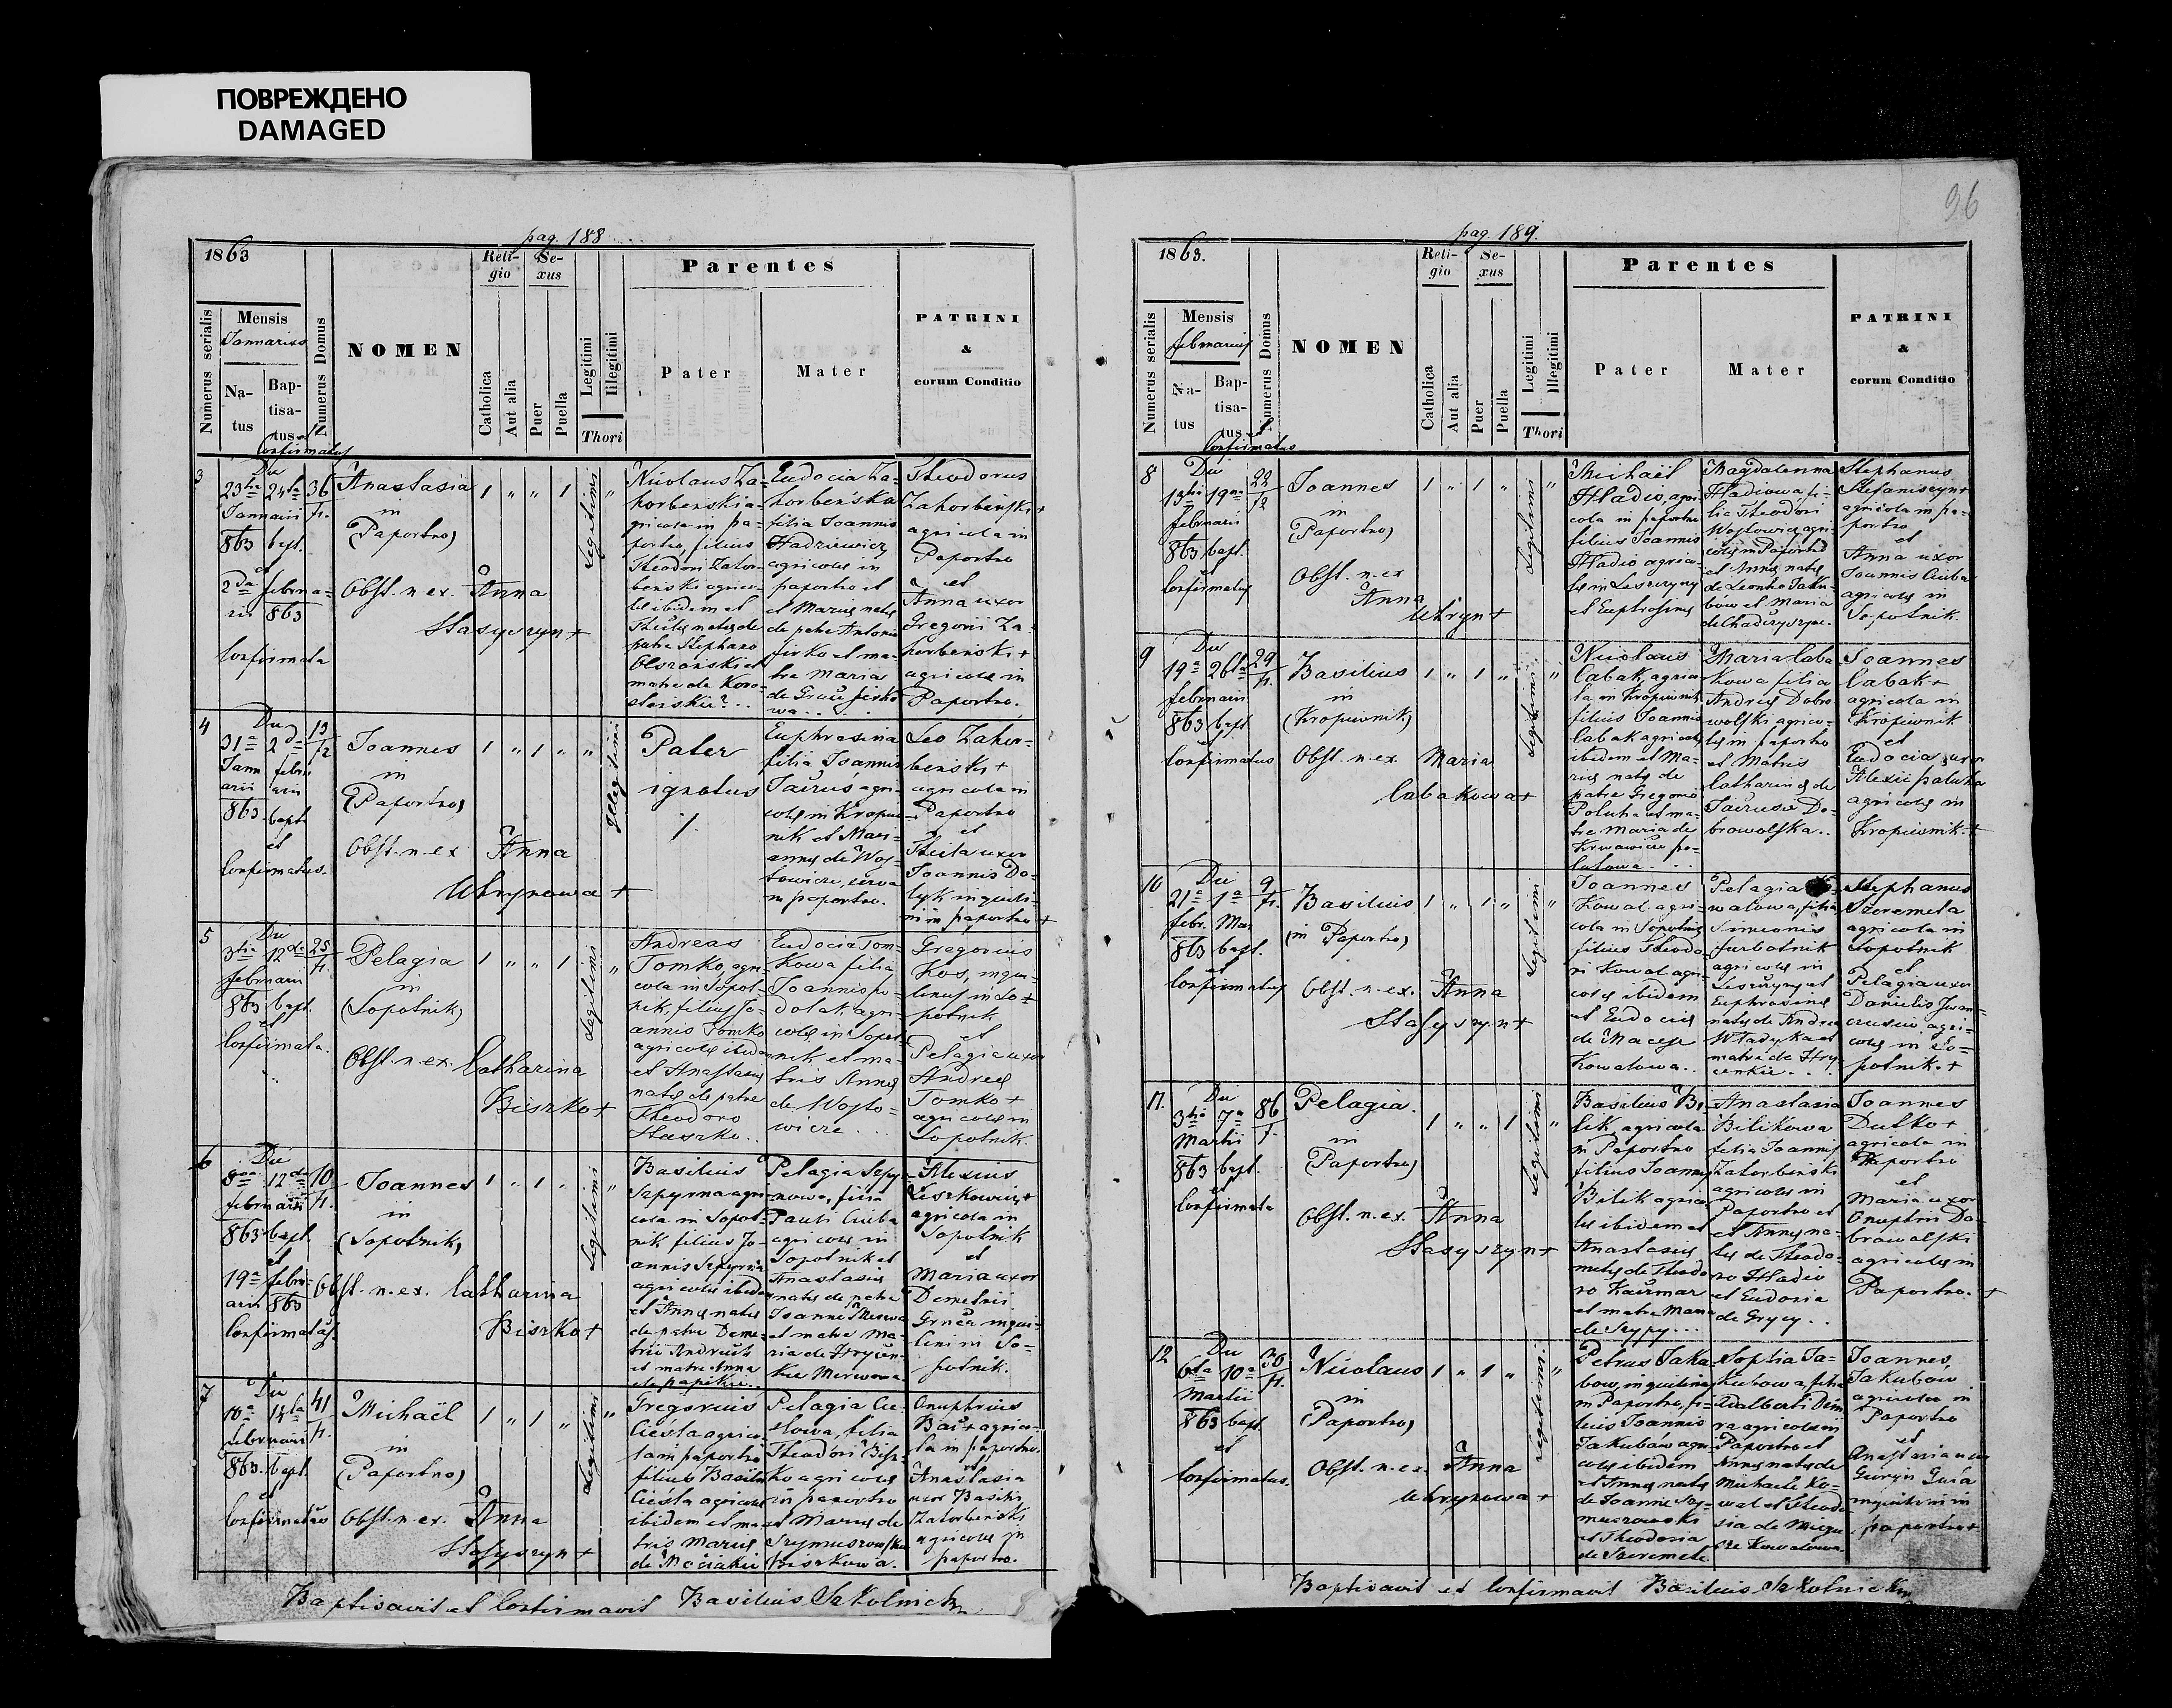 ПОВРЕЖДЕНО
DAMAGED
96
pag. 188
1863
Numerus serialis
Mensis
Januarius
Na-
tus
Bap-
tisa-
tus et
Confirmatus
Numerus Domus
NOMEN
Reli-
gio
Catholica
Aut alia
Se-
xus
Puer
Puella
Legitimi
Illegitimi
Thori
Parentes
Pater
Mater
PATRINI
&
eorum Conditio
3
Die
23tia 24ta 36
Januarii fr.
863 bapt.
et
2da februa-
rii 863
Confirmata
Anastasia
in
(Paportno)
Obst. n. ex. Anna
Stasyszyn +
1 " " 1
Legitimi
"
Nicolaus Za-
horbenski a-
gricola in pa-
portno, filius
Theodori Zahor-
benski agrico-
lae ibidem et
Theclae natae de
patre Stephano
Olszanski et
matre de
Eudocia Za-
horbenska
filia Joannis
agricolae in
paportno et
et Mariae natae
de patre Antonio
Jirko et ma-
tre Maria
Theodorus
Zahorbenski +
agricola in
Paportno
et
Anna uxor
Gregorii Za-
horbenski +
agricolae in
Paportno.
4
Die 13
31a 2da fr.
Janu februa
arii arii
863. bapt
et
Confirmatus.
Joannes
in
(Paportno)
Obst. n. ex Anna
Uhrynowa +
1 " 1 " "
Illegitimi
Pater
ignotus
/.
Euphrosina
filia Joannis
agri-
colae in Kropiw
nik et Mari-
annae de Woj-
towicze, serva
in paportno.
Leo Zahor-
benski +
agricola in
Paportno
et
Thecla uxor
Joannis Do-
lyk inquili-
ni in paportno +
5
Die
3tia 12da 25
februarii fr.
863 bapt.
et
Confirmata.
Pelagia
in
(Sopotnik)
Obst. n. ex. Catharina
Biszko +
1 " " 1
Legitimi
"
Andreas
Tomko, agri-
cola in Sopot-
nik, filius Jo-
annis Tomko
agricolae ibidem
et Anastasiae
natae de patre
Theodoro
Staszko..
Eudocia Tom-
kowa filia
Joannis po-
dolak, agri-
colae in Sopot-
nik et ma-
tris Annae
de Wojto-
wicze ...
Gregorius
Kos, inqui-
linus in So- +
potnik
et
Pelagia uxor
Andreae
Tomko +
agricolae in
Sopotnik.
6
Die
8va 12da 10
februarii fr.
863 bapt
et
19a febru-
arii 863
Confirmatus.
Joannes
in
(Sopotnik)
Obst. n. ex. Catharina
Biszko +
1 " 1 "
Legitimi
"
Basilius
Szpyrna agri-
cola in Sopot-
nik filius Jo-
annis Szpyrna
agricolae ibidem
et Annae natae
de patre Deme-
trii
et matre Anna
Pelagia Szpyr-
nowa, filia
Pauli Ciuba
agricolae in
Sopotnik et
Anastasiae
natae de patre
Joanne
et matre Ma-
ria de
Alexius
Leszkowicz +
agricola in
Sopotnik
et
Maria uxor
Demetrii
inqui-
lini in So-
potnik.
7
Die
10a 14ta 41
februarii fr.
863. bapt.
et
Confirmatus
Michaël
in
(Paportno)
Obst. n. ex. Anna
Stasyszyn +
1 " 1 "
Legitimi
"
Gregorius
Ciesla agrico-
la in paportno
filius Basilii
Ciesla agricolae
ibidem et ma-
tris Mariae
Pelagia Cie-
slowa, filia
Theodori Bisz-
ko agricolae
in paportno
et Mariae de
Biszkowa.
Onuphrius
agrico-
la in paportno.
et
Anastasia
uxor Basilii
Zahorbenski
agricolae in
paportno.
Baptisavit et Confirmavit Basilius Szkolnicki
pag. 189.
1863.
Numerus serialis
Mensis
februarius
Na-
tus
Bap-
tisa-
tus et
Confirmatus
Numerus Domus
NOMEN
Reli-
gio
Catholica
Aut alia
Se-
xus
Puer
Puella
Legitimi
Illegitimi
Thori
Parentes
Pater
Mater
PATRINI
&
eorum Conditio
8
Die 22
13tia 19na fr.
februarii
863 bapt.
et
Confirmatus
Joannes
in
(Paportno)
Obst. n. ex
Anna
Uhryn +
1 " 1 "
Legitimi
"
Michaël
Hladio, agri-
cola in paportno
filius Joannis
Hladio agrico-
lae in Leszczyny
et Euphrosinae
Magdalenna
Hladiowa fi-
lia Theodori
Wojtowicz agri-
colae in Paportno
et Annae natae
de Leontio Jaku-
bów et Maria
Stephanus
Stefaniszyn +
agricola in pa-
portno
et
Anna uxor
Joannis Ciuba
agricolae in
Sopotnik.
9
Die 29
19a 26ta fr.
februarii
863 bapt
et
Confirmatus
Basilius
in
(Kropiwnik)
Obst. n. ex. Maria
Cabakowa +
1 " 1 "
Legitimi
"
Nicolaus
Cabak, agrico-
la in Kropiwnik
filius Joannis
Cabak agricolae
ibidem et Ma-
riae natae de
patre Gregorio
Poluha et ma-
tre Maria de
Maria Caba
kowa filia
Andreae Dobro-
wolski agrico-
lae in paportno
et Matris
Catharinae de
Do-
browolska..
Joannes
Cabak +
agricola in
Kropiwnik
et
Eudocia uxor
Alexii paluha
agricolae in
Kropiwnik. +
10
Die 9
21a 1a fr.
febr. Mar
863 bapt.
et
Confirmatus
Basilius
(in Paportno)
Obst. n. ex. Anna
Stasyszyn +
1 " 1 "
Legitimi
"
Joannes
Kowal agri-
cola in Sopotnik
filius Theodo-
ri Kowal agri-
colae ibidem
et Eudociae
de
Kowalowa..
Pelagia Ko-
walowa, filia
Simeonis
agricolae in
Leszczyny et
Euphrosinae
natae de Andrea
Wladyka et
matre de Hry-
Stephanus
Szeremeta
agricola in
Sopotnik
et
Pelagia uxor
Danielis Iwan-
agri-
colae in So-
potnik. +
11.
Die
3tia 7a 86
Martii fr.
863 bapt.
et
Confirmata
Pelagia.
in
(Paportno)
Obst. n. ex. Anna
Stasyszyn +
1 " " 1
Legitimi
"
Basilius Bi-
lik agricola
in Paportno
filius Joannis
Bilik agrico-
lae ibidem et
Anastasiae
natae de Theodo
ro Kaczmar
et matre Maria
de Szpyr...
Anastasia
Bilikowa
filia Joannis
Zahorbenski
agricolae in
Paportno et
et Annae na-
tae de Theodo-
ro Hladio
et Eudoxia
de Grycy..
Joannes
Dutko +
agricola in
Paportno
et
Maria uxor
Onuphrii Do-
browolski
agricolae in
Paportno. +
12
Die 30
6ta 10a fr.
Martii
863 bapt
et
Confirmatus.
Nicolaus
in
(Paportno)
Obst. n. ex. Anna
Uhrynowa +
1 " 1 "
Legitimi.
"
Petrus Jaku
bow, inquilinus
in Paportno, fi-
lius Joannis
Jakubów agri-
colae ibidem
et Annae natae
de Joanne Szy-
muszowski
et Theodosia
de Szeremeta.
Sophia Ja-
kubowa, filia
Adalberti
agricolae in
Paportno et
Annae natae de
Michaele Ko-
wal et Theodo
sia de
Kowalowa.
Joannes
Jakubow
agricola in
Paportno
et
Anastasia uxor
inquilini in
paportno +
Baptisavit et Confirmavit Basilius Szkolnicki